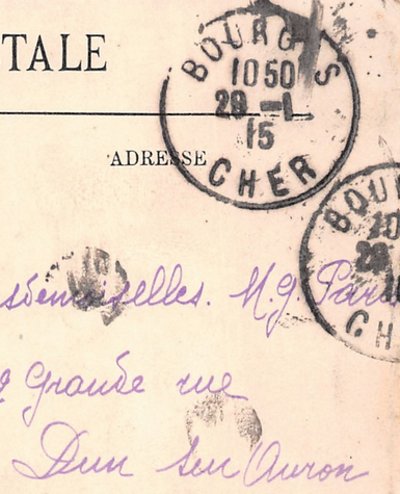 TALE
BOURGES
1050
29 -1
15
CHER
ADRESSE
BOU
10
29
CH
esdemoiselles. M. g. Par
Grande rue
Dun sur Auron